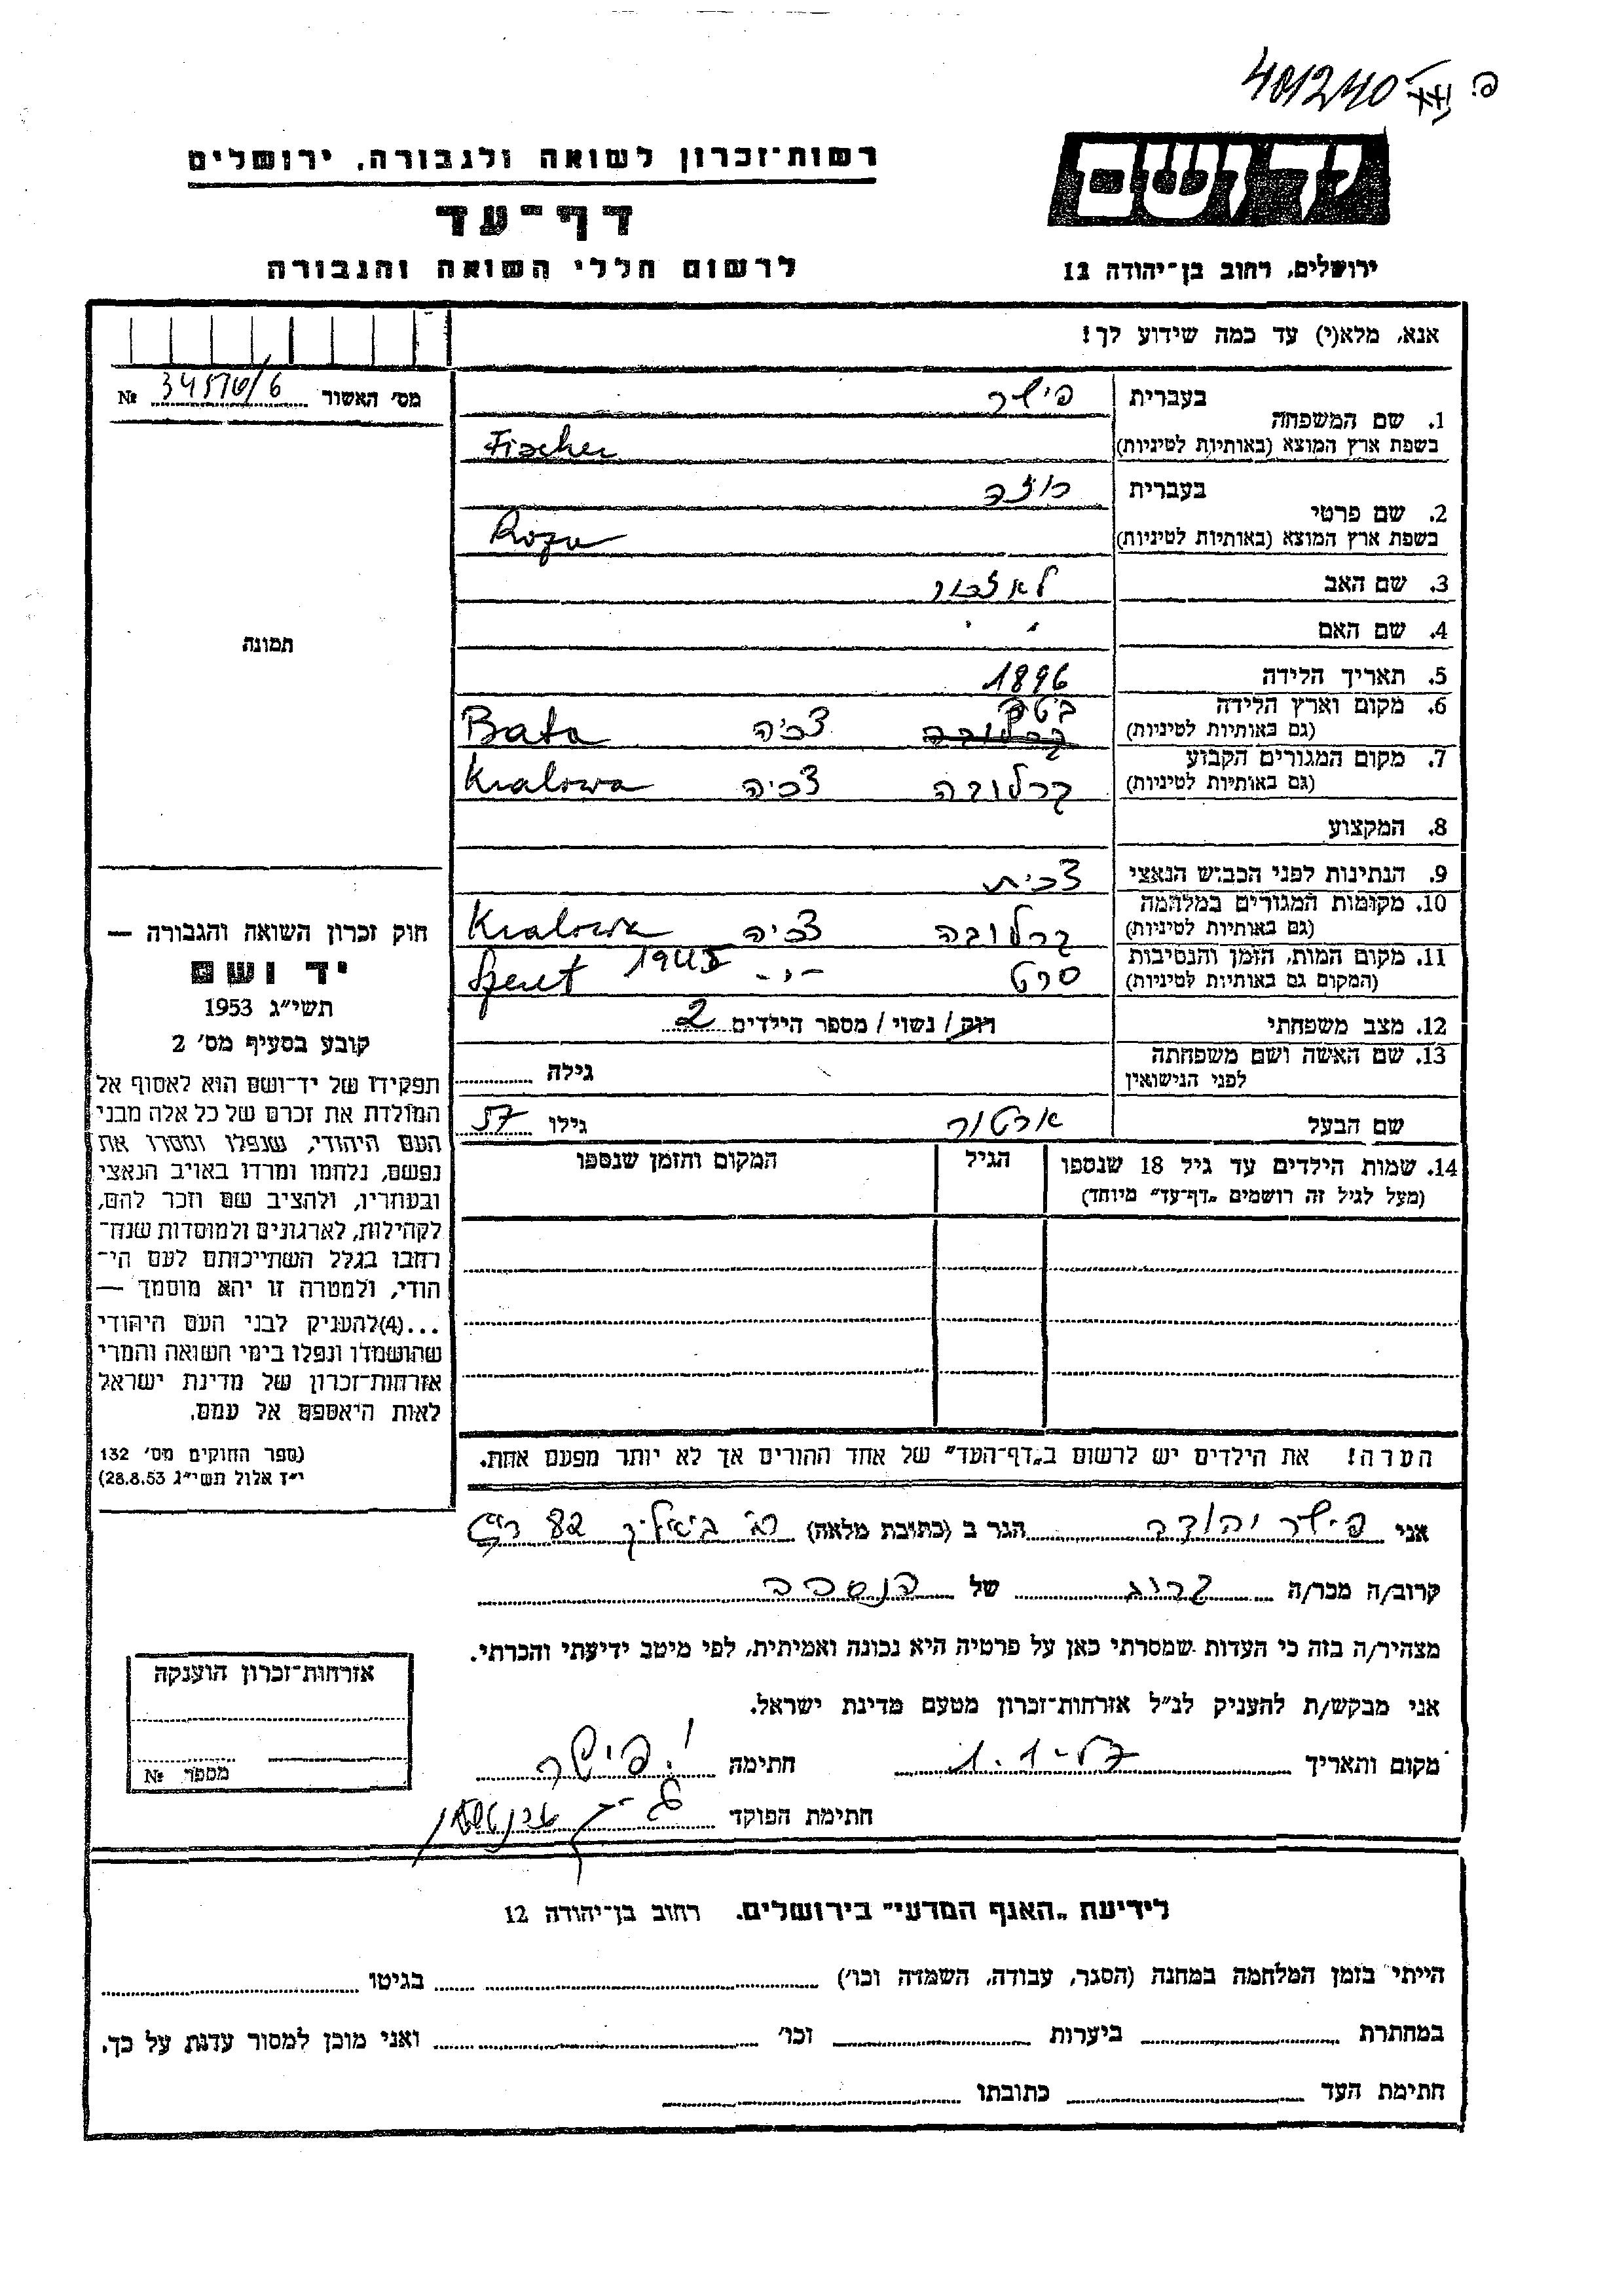 פ. 401240
רשות-זכרון לשואה ולגבורה, ירושלים
דף-עד
לרשום חללי השואה והגבורה
יד ושם
ירושלים, רחוב בן-יהודה 12
אנא, מלא(י) עד כמה שידוע לך!
מס' האשור 34570/6 №
תמונה
1. שם המשפחה
בעברית פישר
בשפת ארץ המוצא (באותיות לטיניות) Fischer
2. שם פרטי
בעברית רוזה
בשפת ארץ המוצא (באותיות לטיניות) Roza
3. שם האב לא זכור
4. שם האם " "
5. תאריך הלידה 1896
6. מקום וארץ הלידה
(גם באותיות לטיניות) קרלובה בטה צ'כיה Bata
7. מקום המגורים הקבוע
(גם באותיות לטיניות) קרלובה צ'כיה Kralowa
8. המקצוע
9. הנתינות לפני הכבוש הנאצי צ'כית
10. מקומות המגורים במלחמה
(גם באותיות לטיניות) קרלובה צ'כיה Kralowa
11. מקום המות, הזמן והנסיבות
(המקום גם באותיות לטיניות) סרט -"- 1945 Szeret
12. מצב משפחתי רוק / נשוי / מספר הילדים 2
13. שם האשה ושם משפחתה
לפני הנישואין גילה
שם הבעל ארטור גילו 57
14. שמות הילדים עד גיל 18 שנספו
(מעל לגיל זה רושמים „דף-עד" מיוחד)
הגיל
המקום והזמן שנספו
הערה! את הילדים יש לרשום ב„דף-העד" של אחד ההורים אך לא יותר מפעם אחת.
חוק זכרון השואה והגבורה —
יד ושם
תשי"ג 1953
קובע בסעיף מס' 2
תפקידו של יד-ושם הוא לאסוף אל
המולדת את זכרם של כל אלה מבני
העם היהודי, שנפלו ומסרו את
נפשם, נלחמו ומרדו באויב הנאצי
ובעוזריו, ולהציב שם וזכר להם,
לקהילות, לארגונים ולמוסדות שנח-
רבו בגלל השתייכותם לעם הי-
הודי, ולמטרה זו יהא מוסמך —
...(4)להעניק לבני העם היהודי
שהושמדו ונפלו בימי השואה והמרי
אזרחות-זכרון של מדינת ישראל
לאות היאספם אל עמם.
(ספר החוקים מס' 132
י"ז אלול תשי"ג 28.8.53)
אני פישר יהודה הגר ב (כתובת מלאה) רח' ביאליק 82 ר"ג
קרוב/ה מכר/ה קרוב של הנספה
מצהיר/ה בזה כי העדות שמסרתי כאן על פרטיה היא נכונה ואמיתית, לפי מיטב ידיעתי והכרתי.
אני מבקש/ת להעניק לנ"ל אזרחות-זכרון מטעם מדינת ישראל.
מקום והתאריך 1.1-57 חתימה י. פישר
חתימת הפוקד
אזרחות-זכרון הוענקה
מספר №
לידיעת „האגף המדעי" בירושלים. רחוב בן-יהודה 12
הייתי בזמן המלחמה במחנה (הסגר, עבודה, השמדה וכו') בגיטו
במחתרת ביערות וכו' ואני מוכן למסור עדות על כך.
חתימת העד כתובתו